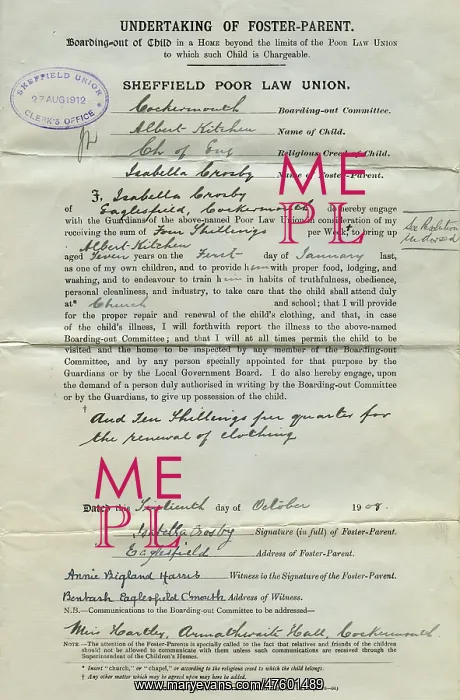 UNDERTAKING OF FOSTER-PARENT.
Boarding-out of Child in a HOME beyond the limits of the POOR LAW UNION
to which such Child is Chargeable.
SHEFFIELD POOR LAW UNION.
SHEFFIELD UNION
27 AUG 1912
CLERK'S OFFICE
Cockermouth Boarding-out Committee.
Albert Kitchen Name of Child.
Ch of Eng Religious Creed of Child.
Isabella Crosby Name of Foster-Parent.
I, Isabella Crosby
of Eaglesfield, Cockermouth do hereby engage
with the Guardians of the above-named Poor Law Union in consideration of my
receiving the sum of Four Shillings per Week,† to bring up
Albert Kitchen
See Resolution
aged Seven years on the First day of January last,
as one of my own children, and to provide him with proper food, lodging, and
washing, and to endeavour to train him in habits of truthfulness, obedience,
personal cleanliness, and industry, to take care that the child shall attend duly
at* Church and school; that I will provide
for the proper repair and renewal of the child's clothing, and that, in case
of the child's illness, I will forthwith report the illness to the above-named
Boarding-out Committee; and that I will at all times permit the child to be
visited and the home to be inspected by any member of the Boarding-out
Committee, and by any person specially appointed for that purpose by the
Guardians or by the Local Government Board. I do also hereby engage, upon
the demand of a person duly authorised in writing by the Boarding-out Committee
or by the Guardians, to give up possession of the child.
† And Ten Shillings per quarter for
the renewal of clothing
ME
PL
ME
PL
Dated this day of October 1908.
Isabella Crosby Signature (in full) of Foster-Parent.
Eaglesfield Address of Foster-Parent.
Annie Bigland Harris Witness to the Signature of the Foster-Parent.
Eaglesfield C'mouth Address of Witness.
N.B.—Communications to the Boarding-out Committee to be addressed—
Miss Hartley, Armathwaite Hall, Cockermouth
NOTE.—The attention of the Foster-Parents is specially called to the fact that relatives and friends of the children
should not be allowed to communicate with them unless such communications are received through the
Superintendent of the Children's Homes.
* Insert "church," or "chapel," or according to the religious creed to which the child belongs.
† Any other matter which may be agreed upon may have to be added.
www.maryevans.com/47601489